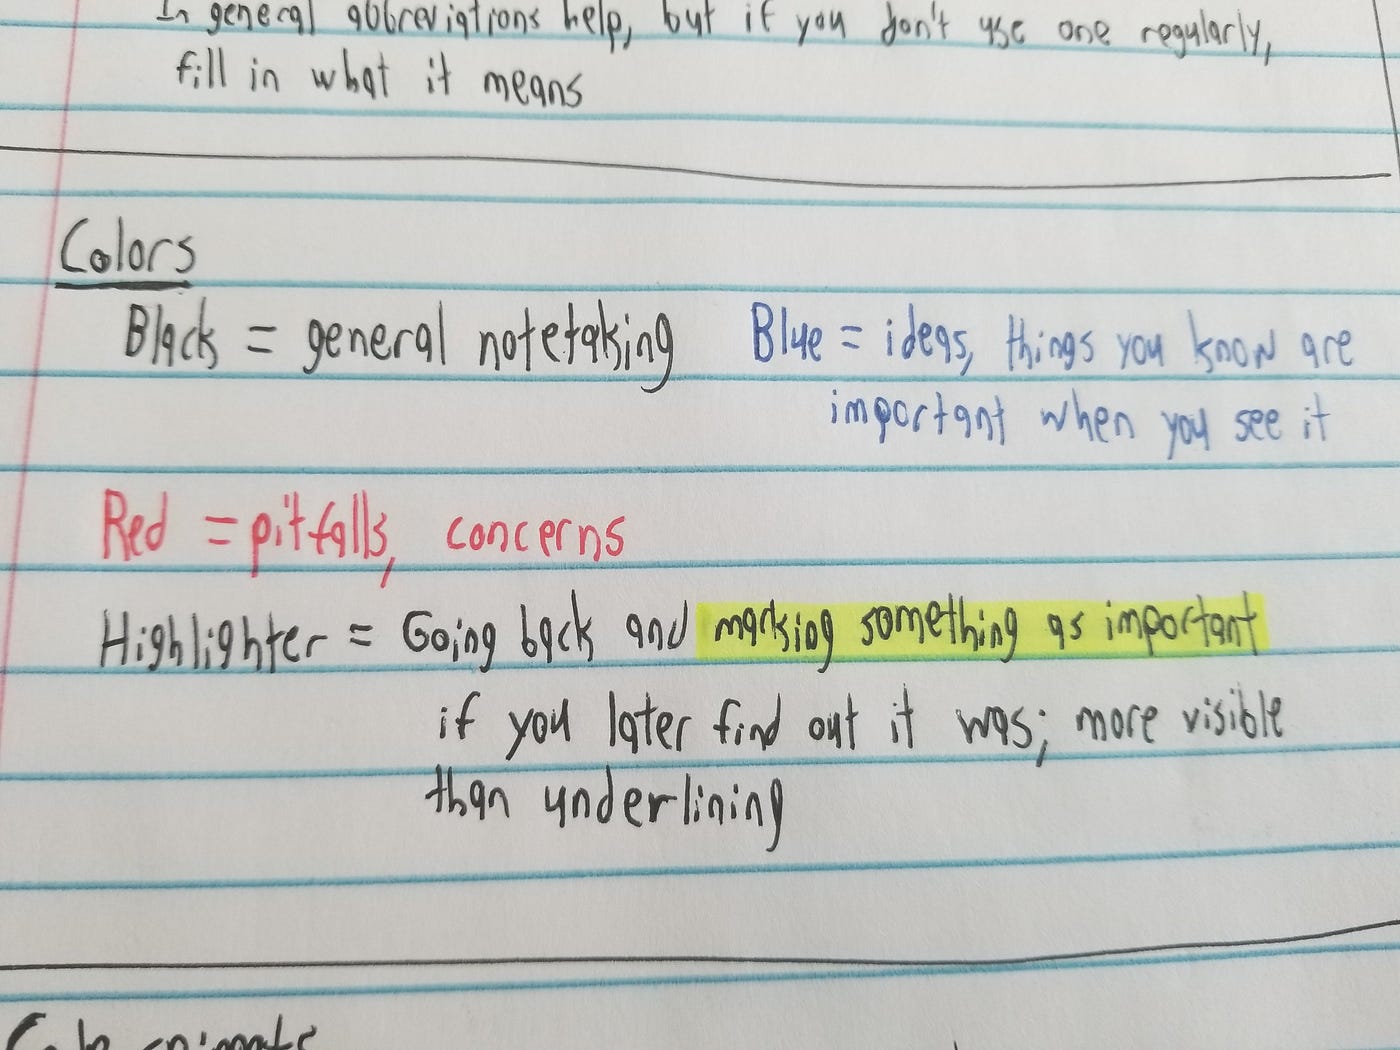 In general abbreviations help, but if you don't use one regularly,
fill in what it means
Colors
Black = general notetaking
Blue = ideas, things you know are
important when you see it
Red = pitfalls, concerns
Highlighter = Going back and marking something as important
if you later find out it was; more visible
than underlining